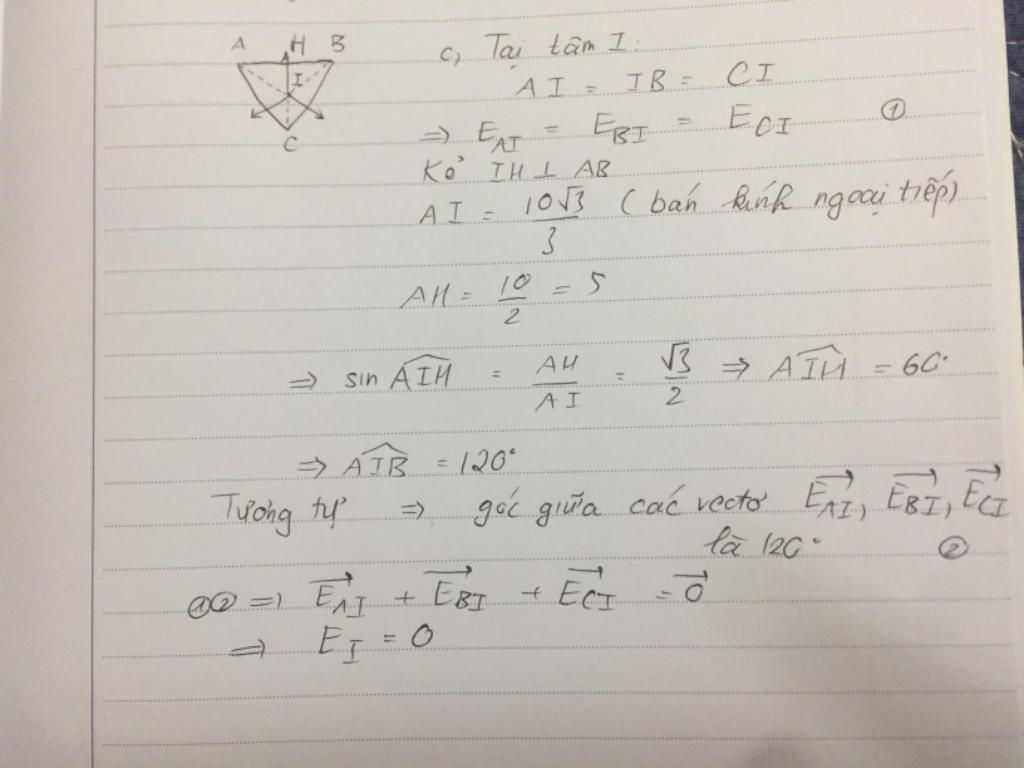 A H B
I
C
c, Tại tâm I:
AI = IB = CI
⇒ E_AI = E_BI = E_CI ①
Kẻ IH ⊥ AB
AI = 10√3/3 (bán kính ngoại tiếp)
AH = 10/2 = 5
⇒ sin \widehat{AIH} = AH/AI = √3/2 ⇒ \widehat{AIH} = 60°
⇒ \widehat{AIB} = 120°
Tương tự ⇒ góc giữa các vectơ \overrightarrow{E_AI}, \overrightarrow{E_BI}, \overrightarrow{E_CI}
là 120° ②
①② ⇒ \overrightarrow{E_AI} + \overrightarrow{E_BI} + \overrightarrow{E_CI} = \overrightarrow{0}
⇒ E_I = 0